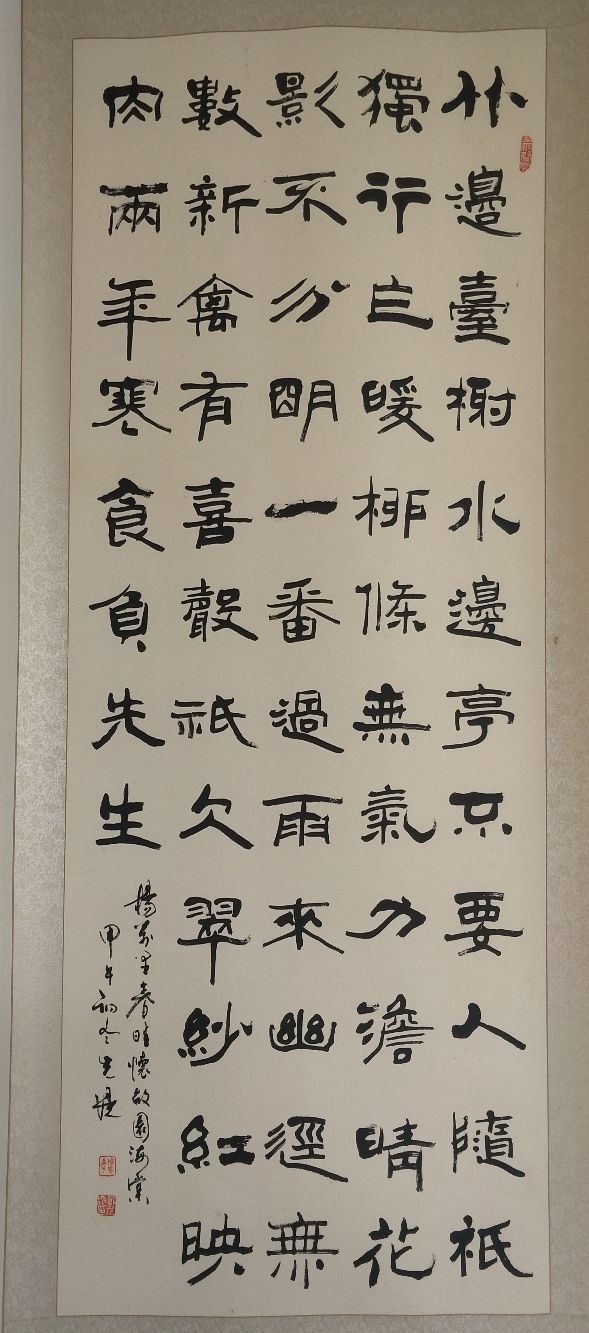 竹邊臺榭水邊亭不要人隨祇
獨行乍暖柳條無氣力澹晴花
影不分明一番過雨來幽徑無
數新禽有喜聲祇欠翠紗紅映
肉兩年寒食負先生
楊萬里春晴懷故園海棠
甲午初冬